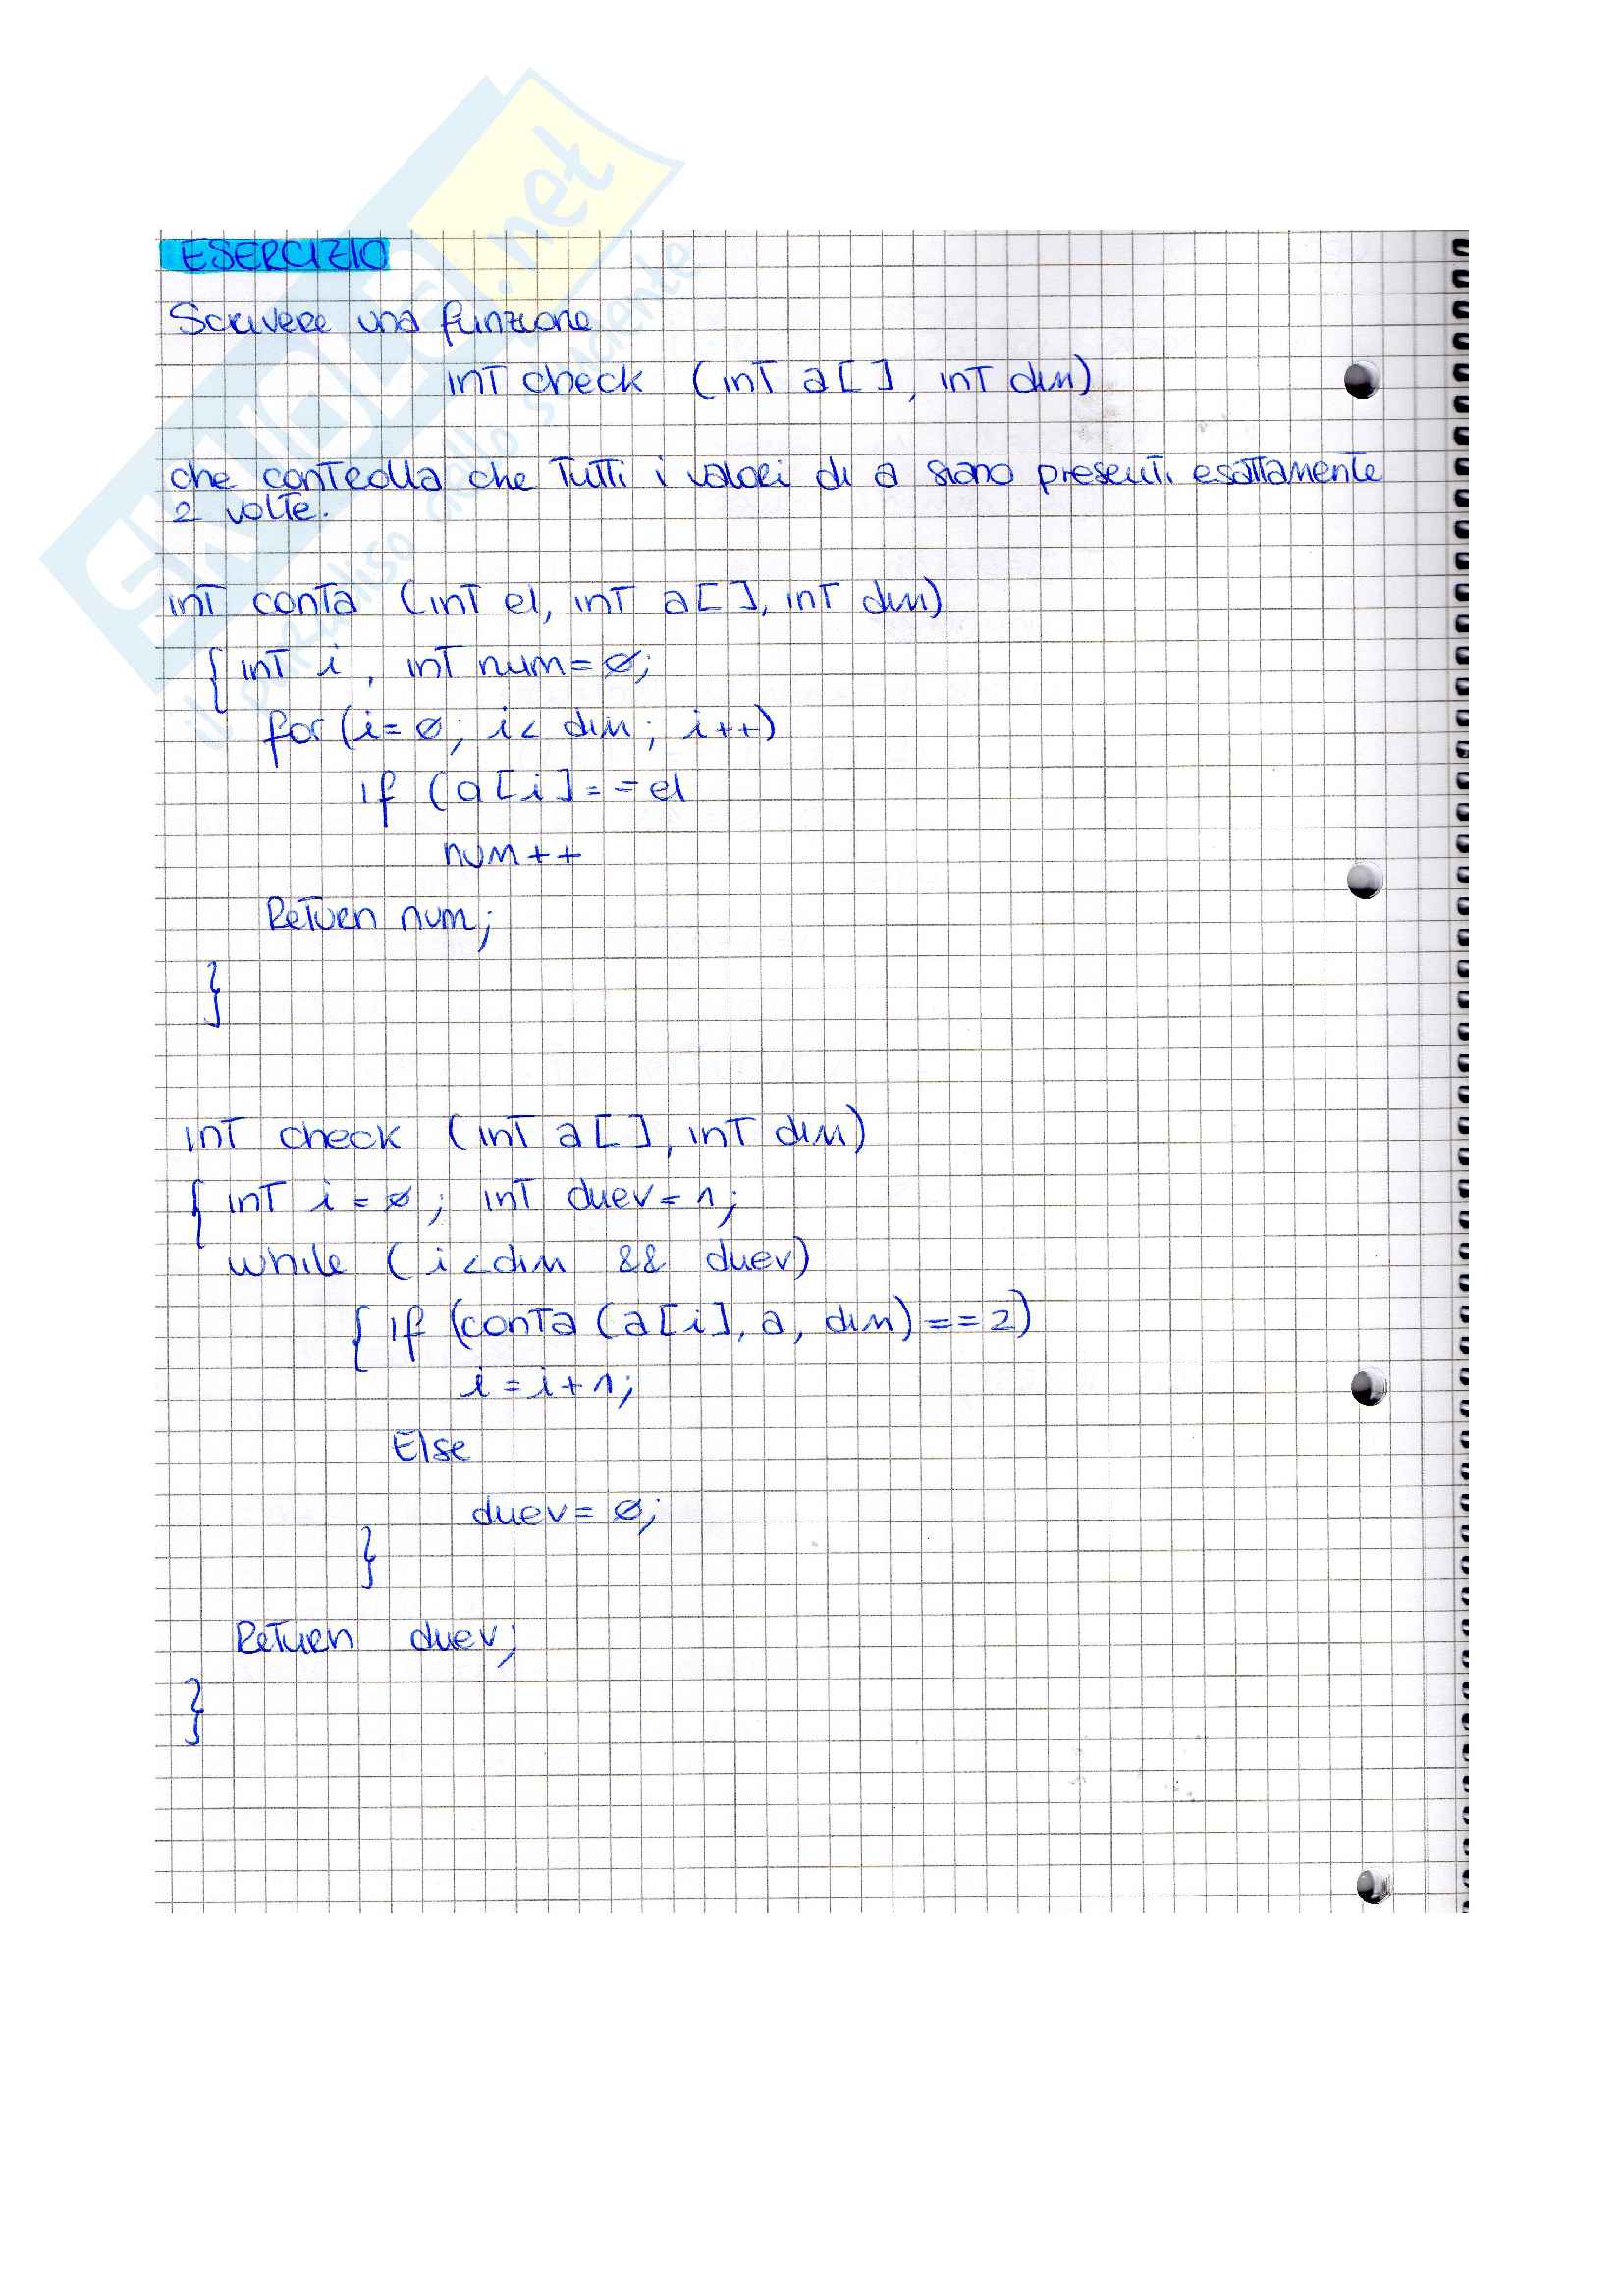 ESERCIZIO
Scrivere una funzione
int check (int a[], int dim)
che controlla che tutti i valori di a siano presenti esattamente
2 volte.
int conta (int el, int a[], int dim)
{ int i, int num=0;
for (i=0; i< dim; i++)
if (a[i]==el
num++
Return num;
}
int check (int a[], int dim)
{ int i=0; int duev=1;
while (i<dim && duev)
{ if (conta (a[i], a, dim)==2)
i=i+1;
Else
duev=0;
}
Return duev;
}
SKUOLA.net
il paradiso dello studente